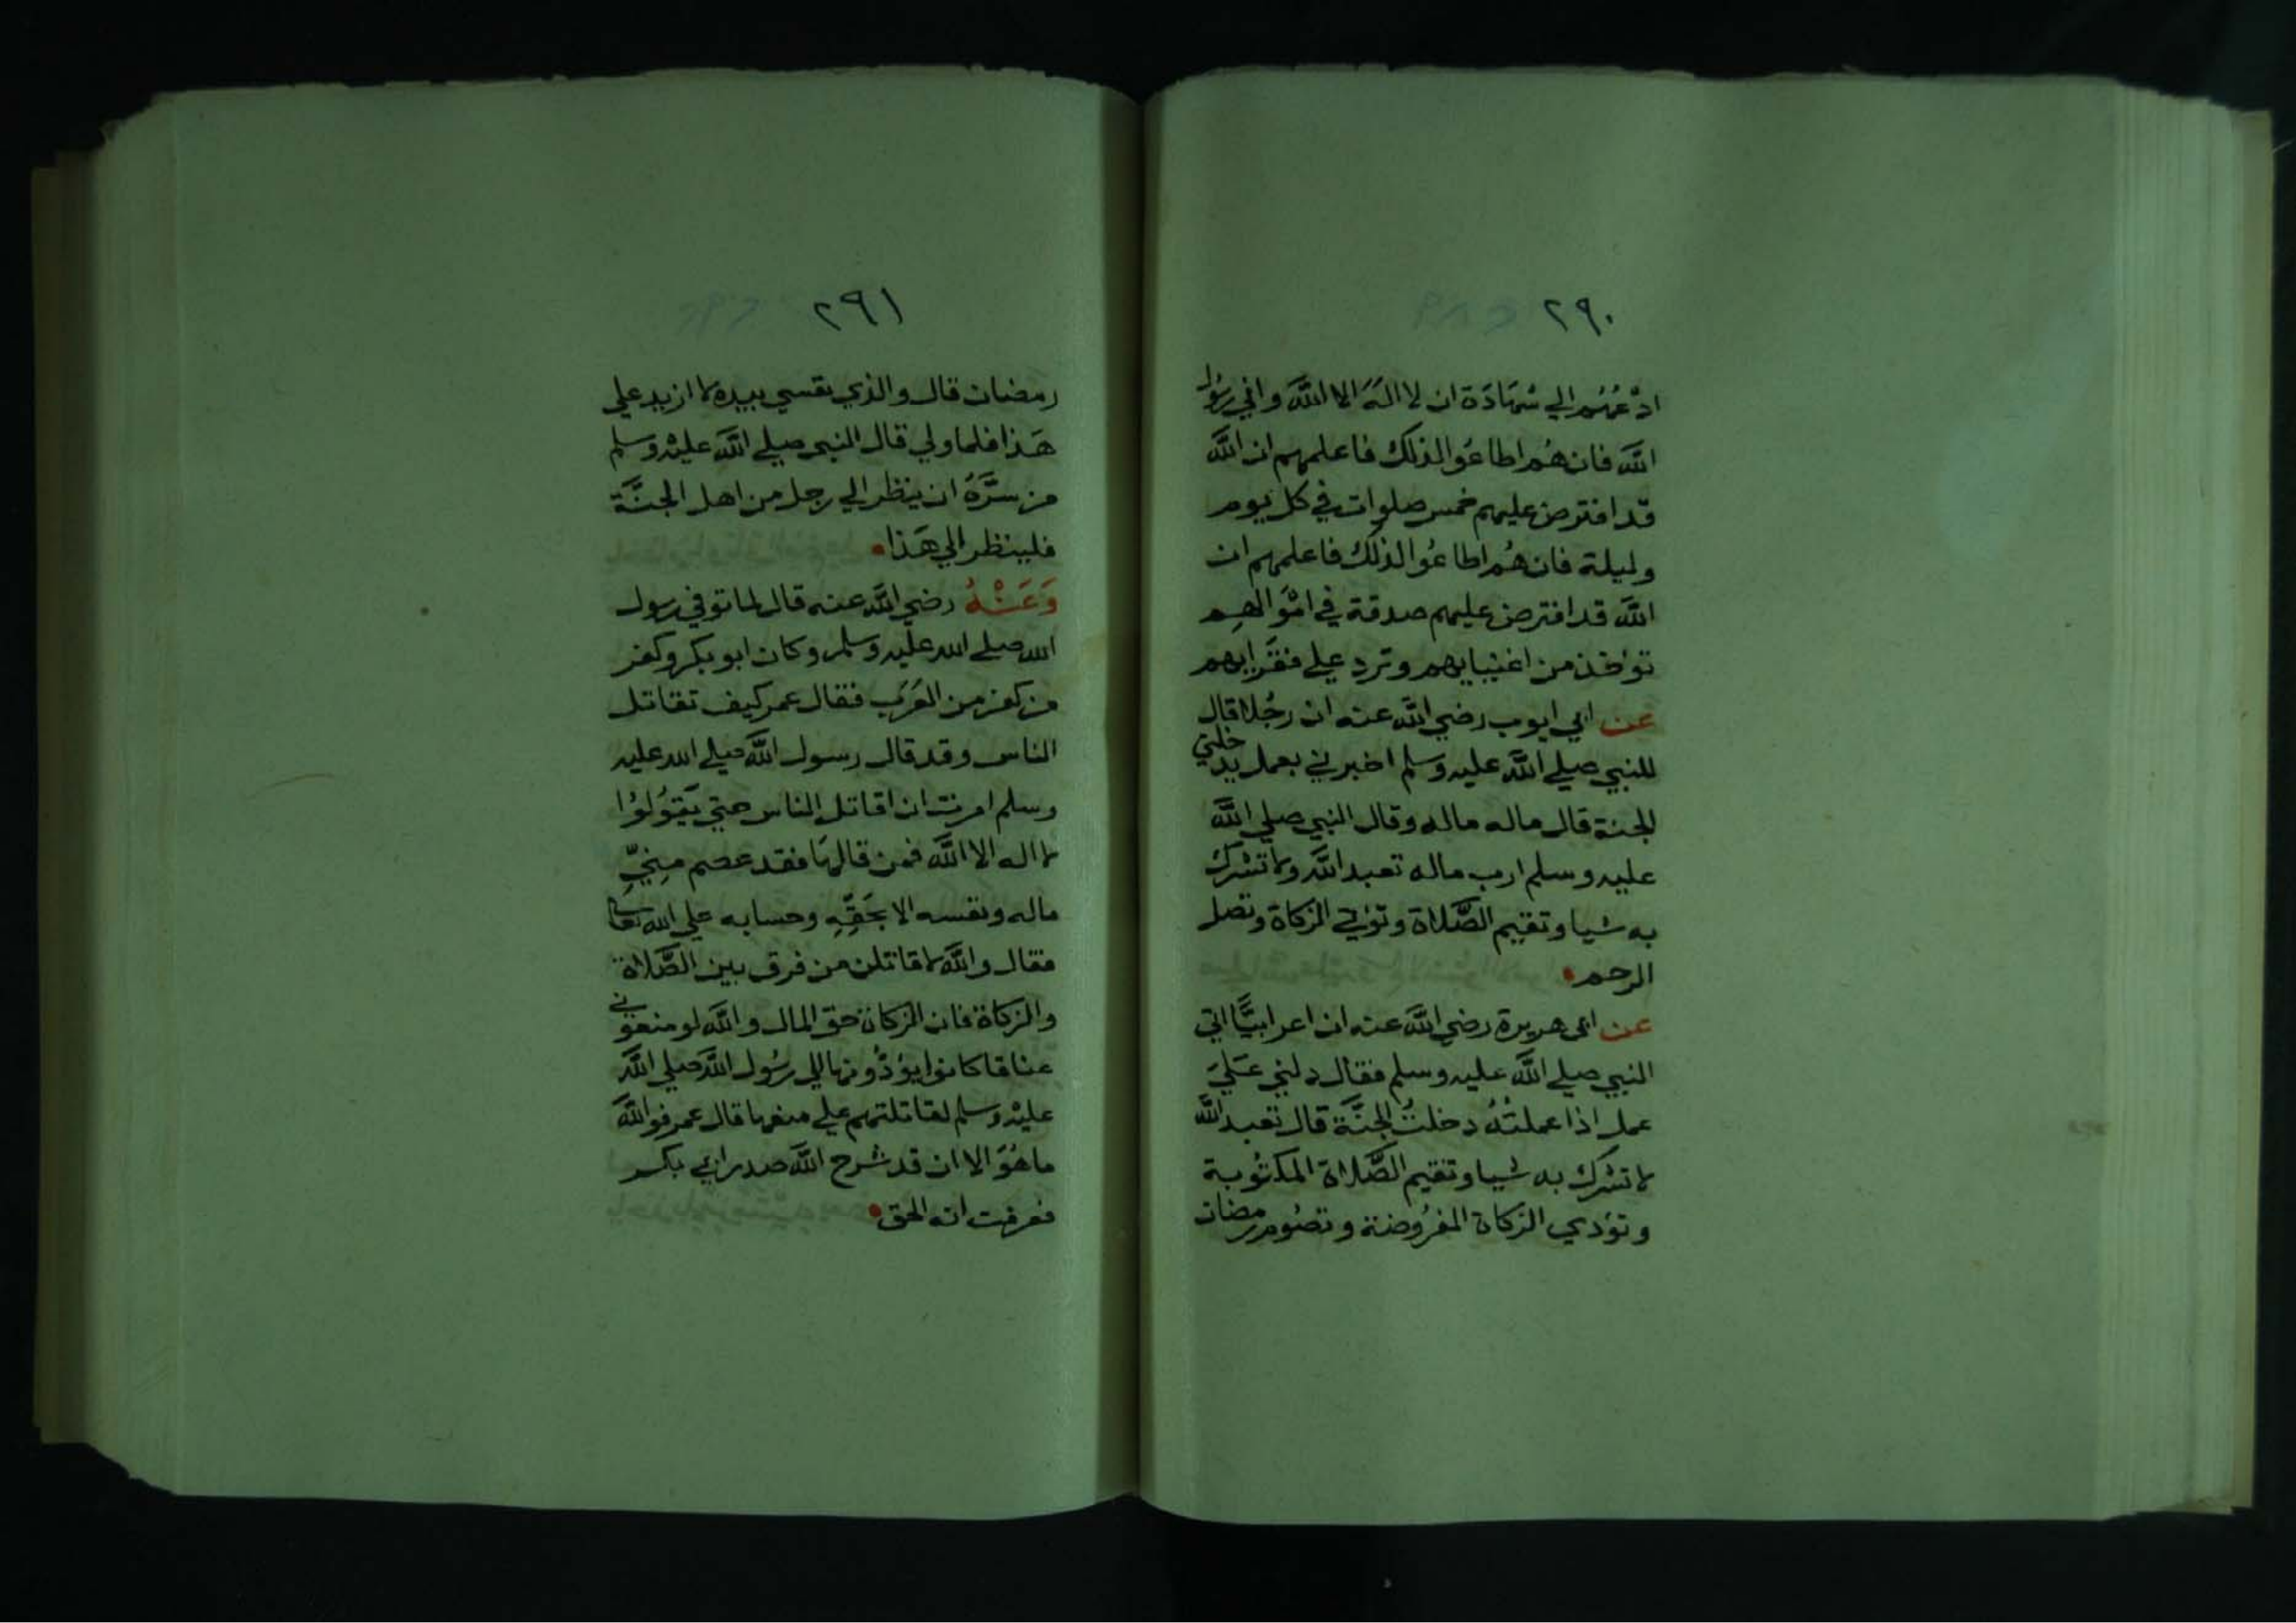 ٢٩٠
ادْعُهُم الي شهَادَة ان لا الهَ الا اللَّه واني رسُول
اللَّه فان هُم اطاعُوا لذلك فاعلمهم ان اللَّه
قد افترض عليهم خمس صلوات في كل يوم
وليلة فان هُم اطاعُوا لذلك فاعلمهم ان
اللَّه قد افترض عليهم صدقة في امْوَالهِم
توخذ من اغنيايهم وترد علي فقرايهم
عن ابي ايوب رضي اللَّه عنه ان رجُلا قال
للنبي صلي اللَّه عليه وسلم اخبرني بعمل يدخلني
الجنة قال ماله ماله وقال النبي صلي اللَّه
عليه وسلم ارب ماله تعبد اللَّه ولا تشرك
به شيا وتقيم الصَّلاة وتوتي الزكاة وتصل
الرحم
عن ابى هريرة رضي اللَّه عنه ان اعرابيًّا اتي
النبي صلي اللَّه عليه وسلم فقال دلني عَلَي
عمل اذا عملتُهُ دخلتُ الجنَّة قال تعبد اللَّه
لا تشرك به شيا وتقيم الصَّلاة المكتُوبة
وتؤدي الزكاة المفرُوضة وتصُوم رمضان
٢٩١
رمضان قال والذي نفسي بيده لا ازيد علي
هَذا فلما ولي قال النبي صلي اللَّه عليْه وسلم
من سَرَّهُ ان ينظر الي رجل من اهل الجنَّة
فلينظر الي هَذا
وَعَنْهُ رضي اللَّه عنه قال لما توفي رسول
الله صلي الله عليه وسلم وكان ابو بكر وكفر
من كفر من العَرَب فقال عمر كيف تقاتل
الناس وقد قال رسول اللَّه صلي الله عليه
وسلم امرت ان اقاتل الناس حتي يَقوُلوُا
لا اله الا اللَّه فمن قالهَا فقد عصم مِنيِّ
ماله ونفسه الا بحَقِّهِ وحسابه علي الله تعالي
فقال واللَّه لاقاتلن من فرق بين الصَّلاة
والزكاة فان الزكاة حق المال واللَّه لو منعوني
عناقا كانوا يؤدُّونها الي رسُول اللَّه صلي اللَّه
عليْه وسلم لقاتلتهم علي منعها قال عمر فواللَّه
ما هُوَ الا ان قد شرح اللَّه صدر ابي بكر
فعرفت انه الحق